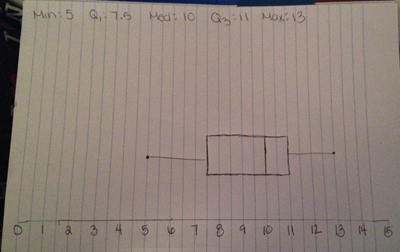 Min: 5 Q₁: 7.5 Med: 10 Q₃: 11 Max: 13
0 1 2 3 4 5 6 7 8 9 10 11 12 13 14 15